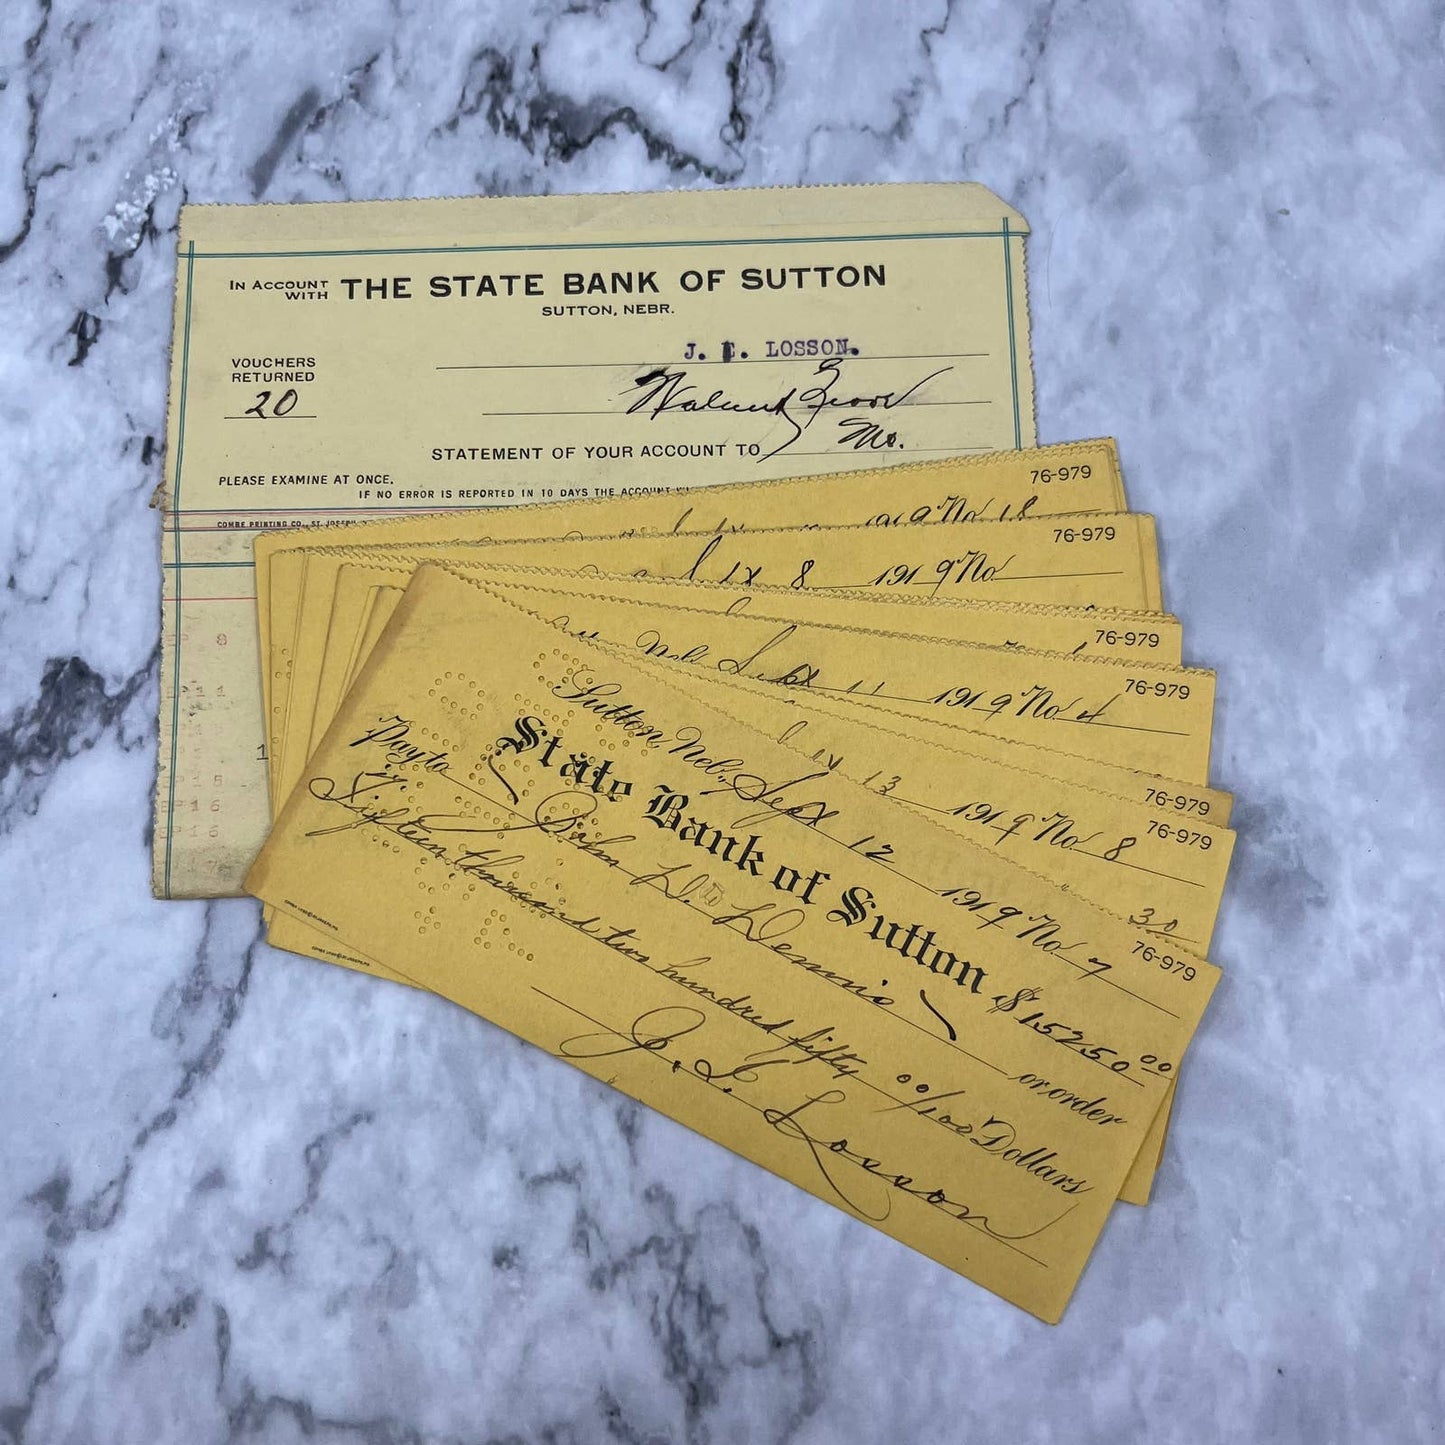 IN ACCOUNT WITH THE STATE BANK OF SUTTON
SUTTON, NEBR.
J. E. LOSSON.
VOUCHERS
RETURNED
20
Walnut Grove
Mo.
STATEMENT OF YOUR ACCOUNT TO
PLEASE EXAMINE AT ONCE.
IF NO ERROR IS REPORTED IN 10 DAYS THE ACCOUNT
COMBE PRINTING CO., ST. JOSEPH
76-979
1919 No 18
76-979
8 1919 No
76-979
76-979
Neb Sept 11 1919 No 4
76-979
13 1919 No 8
76-979
30
76-979
Sutton, Neb., Sept 12 1919 No 7
State Bank of Sutton $15250.00
Pay to John D. Dennis or order
Fifteen thousand two hundred fifty 00/100 Dollars
J. E. Losson